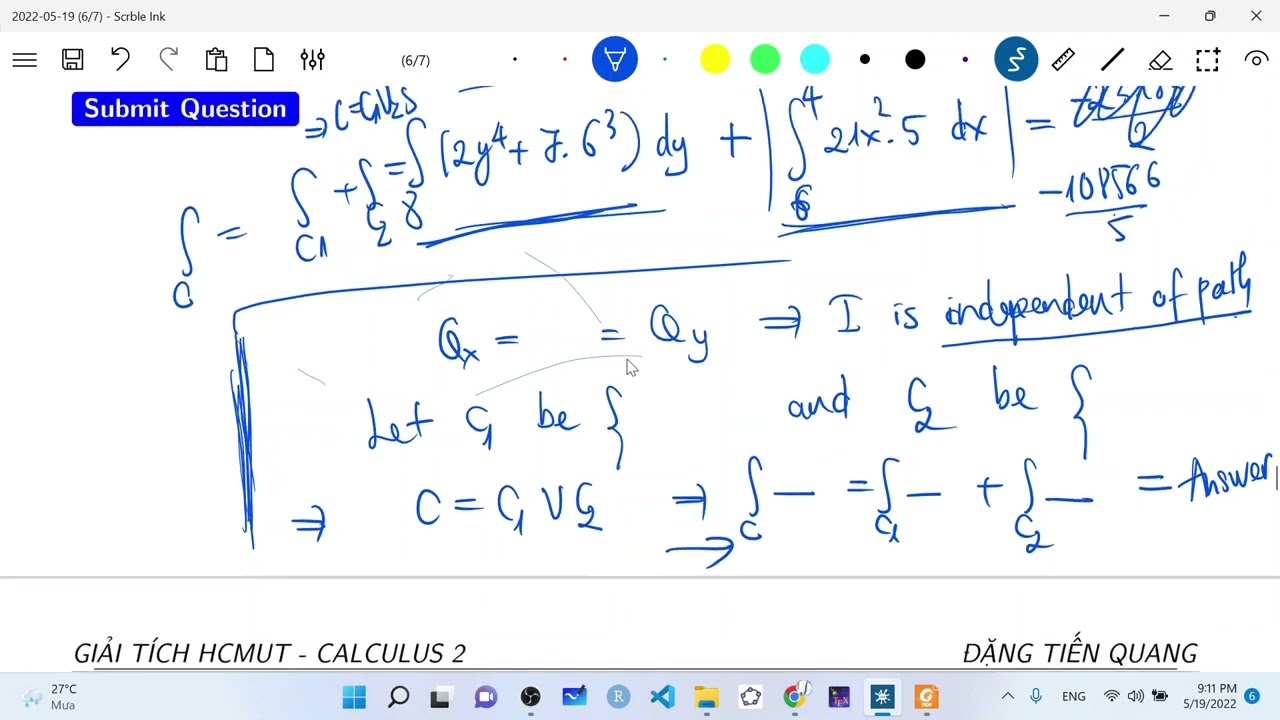 2022-05-19 (6/7) - Scrble Ink
(6/7)
Submit Question
⇒ C = C1∪C2
∫C = ∫C1 + ∫C2 = ∫8 (2y⁴ + 7.6³) dy + |∫6⁴ 21x².5 dx| =
-108566/5
Qx = = Qy ⇒ I is independent of path
Let C1 be { and C2 be {
⇒ C = C1 ∪ C2 ⇒ ∫C — = ∫C1 — + ∫C2 — = Answer
GIẢI TÍCH HCMUT - CALCULUS 2 ĐẶNG TIẾN QUANG
27°C
Mưa
ENG
9:11 PM
5/19/2022
6